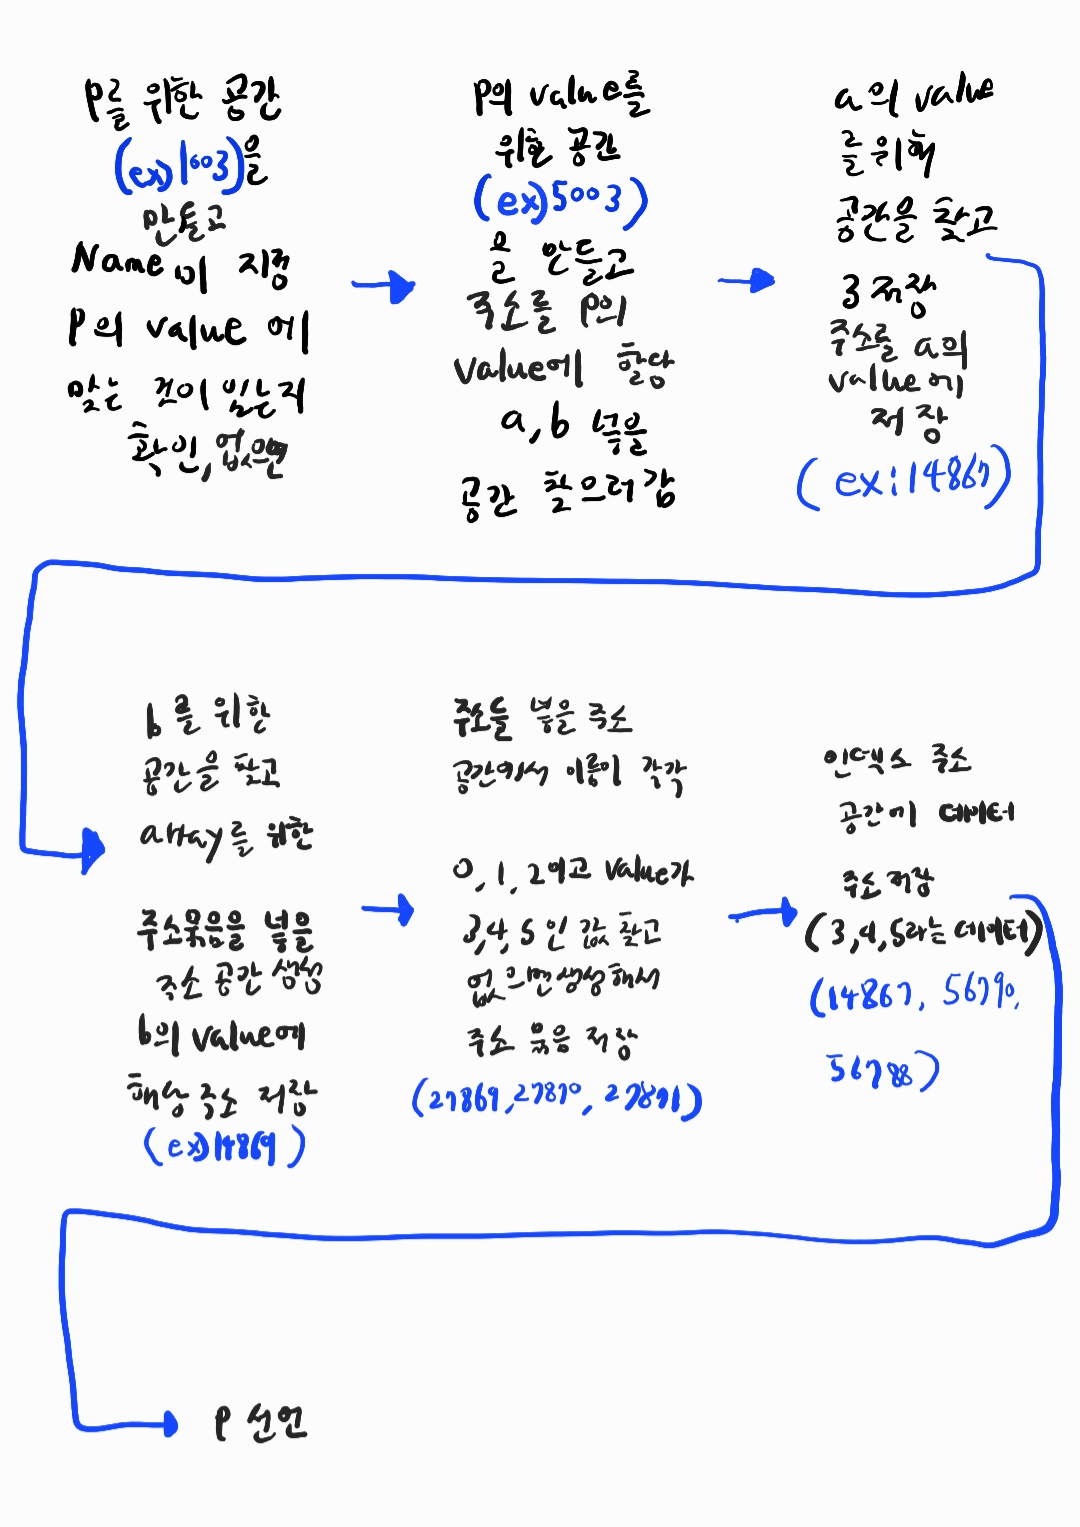 P를 위한 공간
(ex)1003)을
만들고
Name이 지정
P의 value에
맞는 것이 있는지
확인, 없으면
P의 value를
위한 공간
(ex)5003)
을 만들고
주소를 P의
value에 할당
a, b 넣을
공간 찾으러 감
a의 value
를 위해
공간을 찾고
3 저장
주소를 a의
value에
저장
(ex:14867)
b를 위한
공간을 찾고
array를 위한
주소묶음을 넣을
주소 공간 생성
b의 value에
해상 주소 저장
(ex)14869)
주소들 넣을 주소
공간에서 이름이 각각
0, 1, 2이고 value가
3,4,5인 값 찾고
없으면 생성해서
주소 묶음 저장
(27869, 27870, 27871)
인덱스 주소
공간에 데이터
주소 저장
(3,4,5라는 데이터)
(14867, 56790,
56788)
P 선언